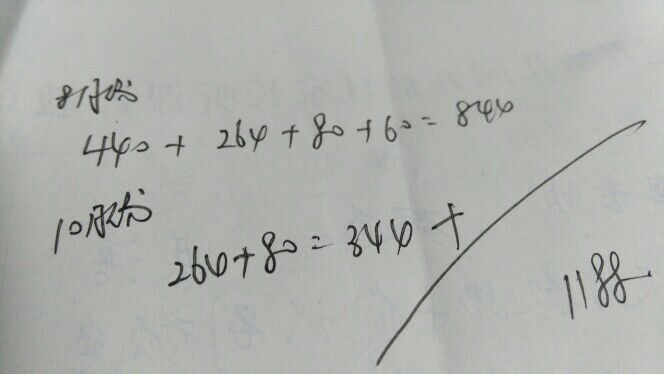 8月份
440+264+80+60=844
10月份
264+80=344+
1188